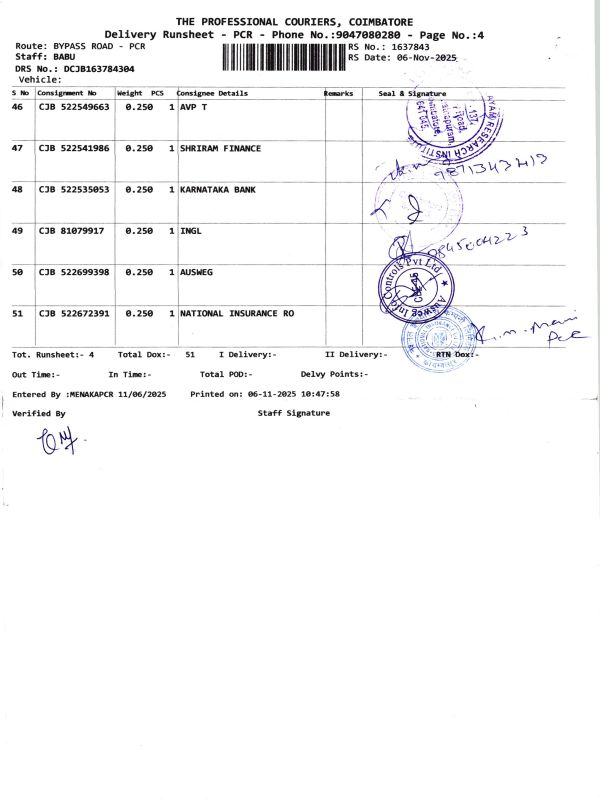 THE PROFESSIONAL COURIERS, COIMBATORE
Delivery Runsheet - PCR - Phone No.:9047080280 - Page No.:4
Route: BYPASS ROAD - PCR RS No.: 1637843
Staff: BABU RS Date: 06-Nov-2025
DRS No.: DCJB163784304
Vehicle:
S No Consignment No Weight PCS Consignee Details Remarks Seal & Signature
46 CJB 522549663 0.250 1 AVP T
RESEARCH INSTITUTE
47 CJB 522541986 0.250 1 SHRIRAM FINANCE
48 CJB 522535053 0.250 1 KARNATAKA BANK
49 CJB 81079917 0.250 1 INGL
9845004223
50 CJB 522699398 0.250 1 AUSWEG
Ausweg Info Controls Pvt Ltd
51 CJB 522672391 0.250 1 NATIONAL INSURANCE RO
Tot. Runsheet:- 4 Total Dox:- 51 I Delivery:- II Delivery:- RTN Dox:-
Out Time:- In Time:- Total POD:- Delvy Points:-
Entered By :MENAKAPCR 11/06/2025 Printed on: 06-11-2025 10:47:58
Verified By Staff Signature